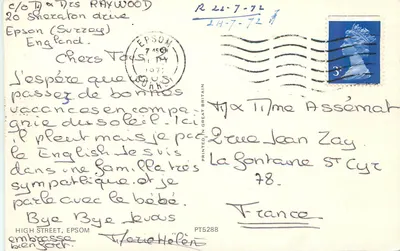 c/o Mr & Mrs RAYWOOD
20 Sheraton drive
Epsom (Surrey)
England.
R 22-7-72
Chers Tous,
J'espère que vous
passez de bonnes
vacances en compa-
gnie du soleil. Ici
il pleut mais je parle
English. Je suis
dans une famille très
sympathique et je
parle avec le bébé.
Bye Bye Je vous
embrasse
bien fort.
Marie Hélèn
EPSOM
SURREY
3P
PRINTED IN GREAT BRITAIN
M/x Mme Assémat
2 rue Jean Zay
La fontaine St Cyr
78.
France
HIGH STREET, EPSOM
PT5288